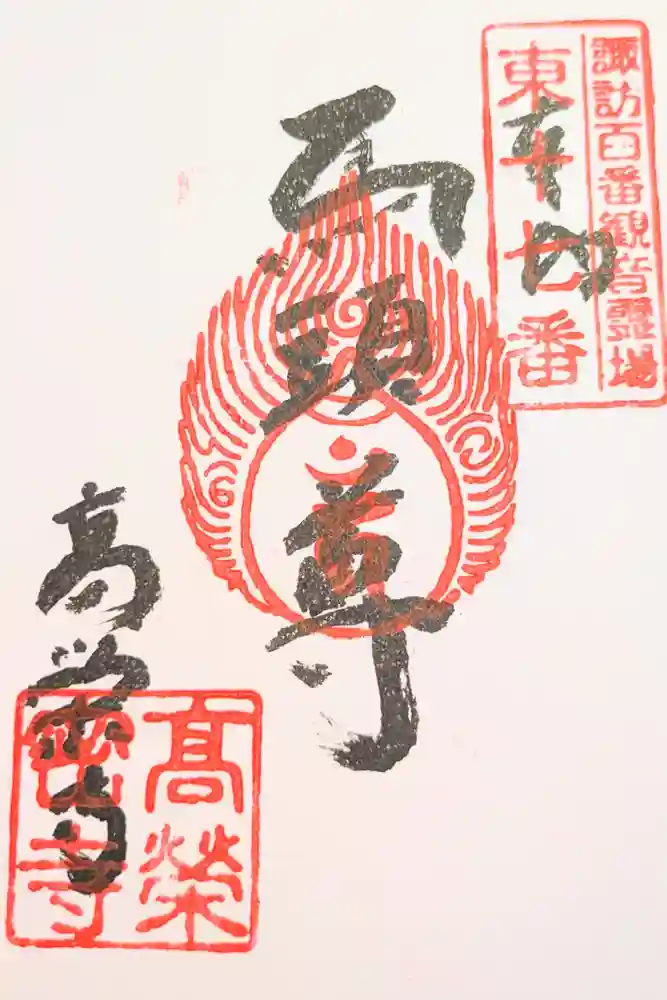 諏訪百番観音霊場
東十七番
馬頭尊
高栄寺
髙榮
密寺